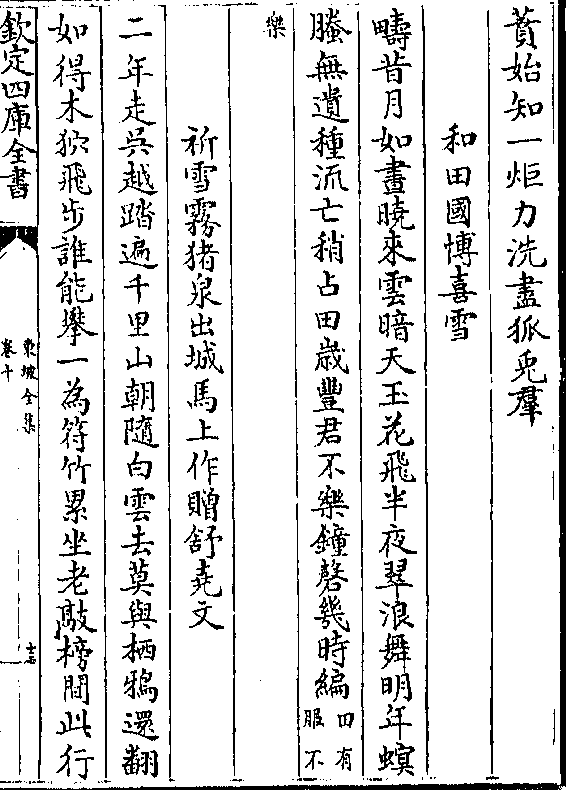 蕡始知一炬力洗盡狐兎羣
和田國博喜雪
疇昔月如晝曉來雲暗天玉花飛半夜翠浪舞明年螟
螣無遺種流亡稍占田歲豐君不樂鐘磬幾時編田有服不
樂
祈雪霧猪泉出城馬上作贈舒堯文
二年走吳越踏遍千里山朝隨白雲去莫與栖鴉還翻
如得木狖飛步誰能攀一為符竹累坐老敲榜間此行
欽定四庫全書
東坡全集
卷十